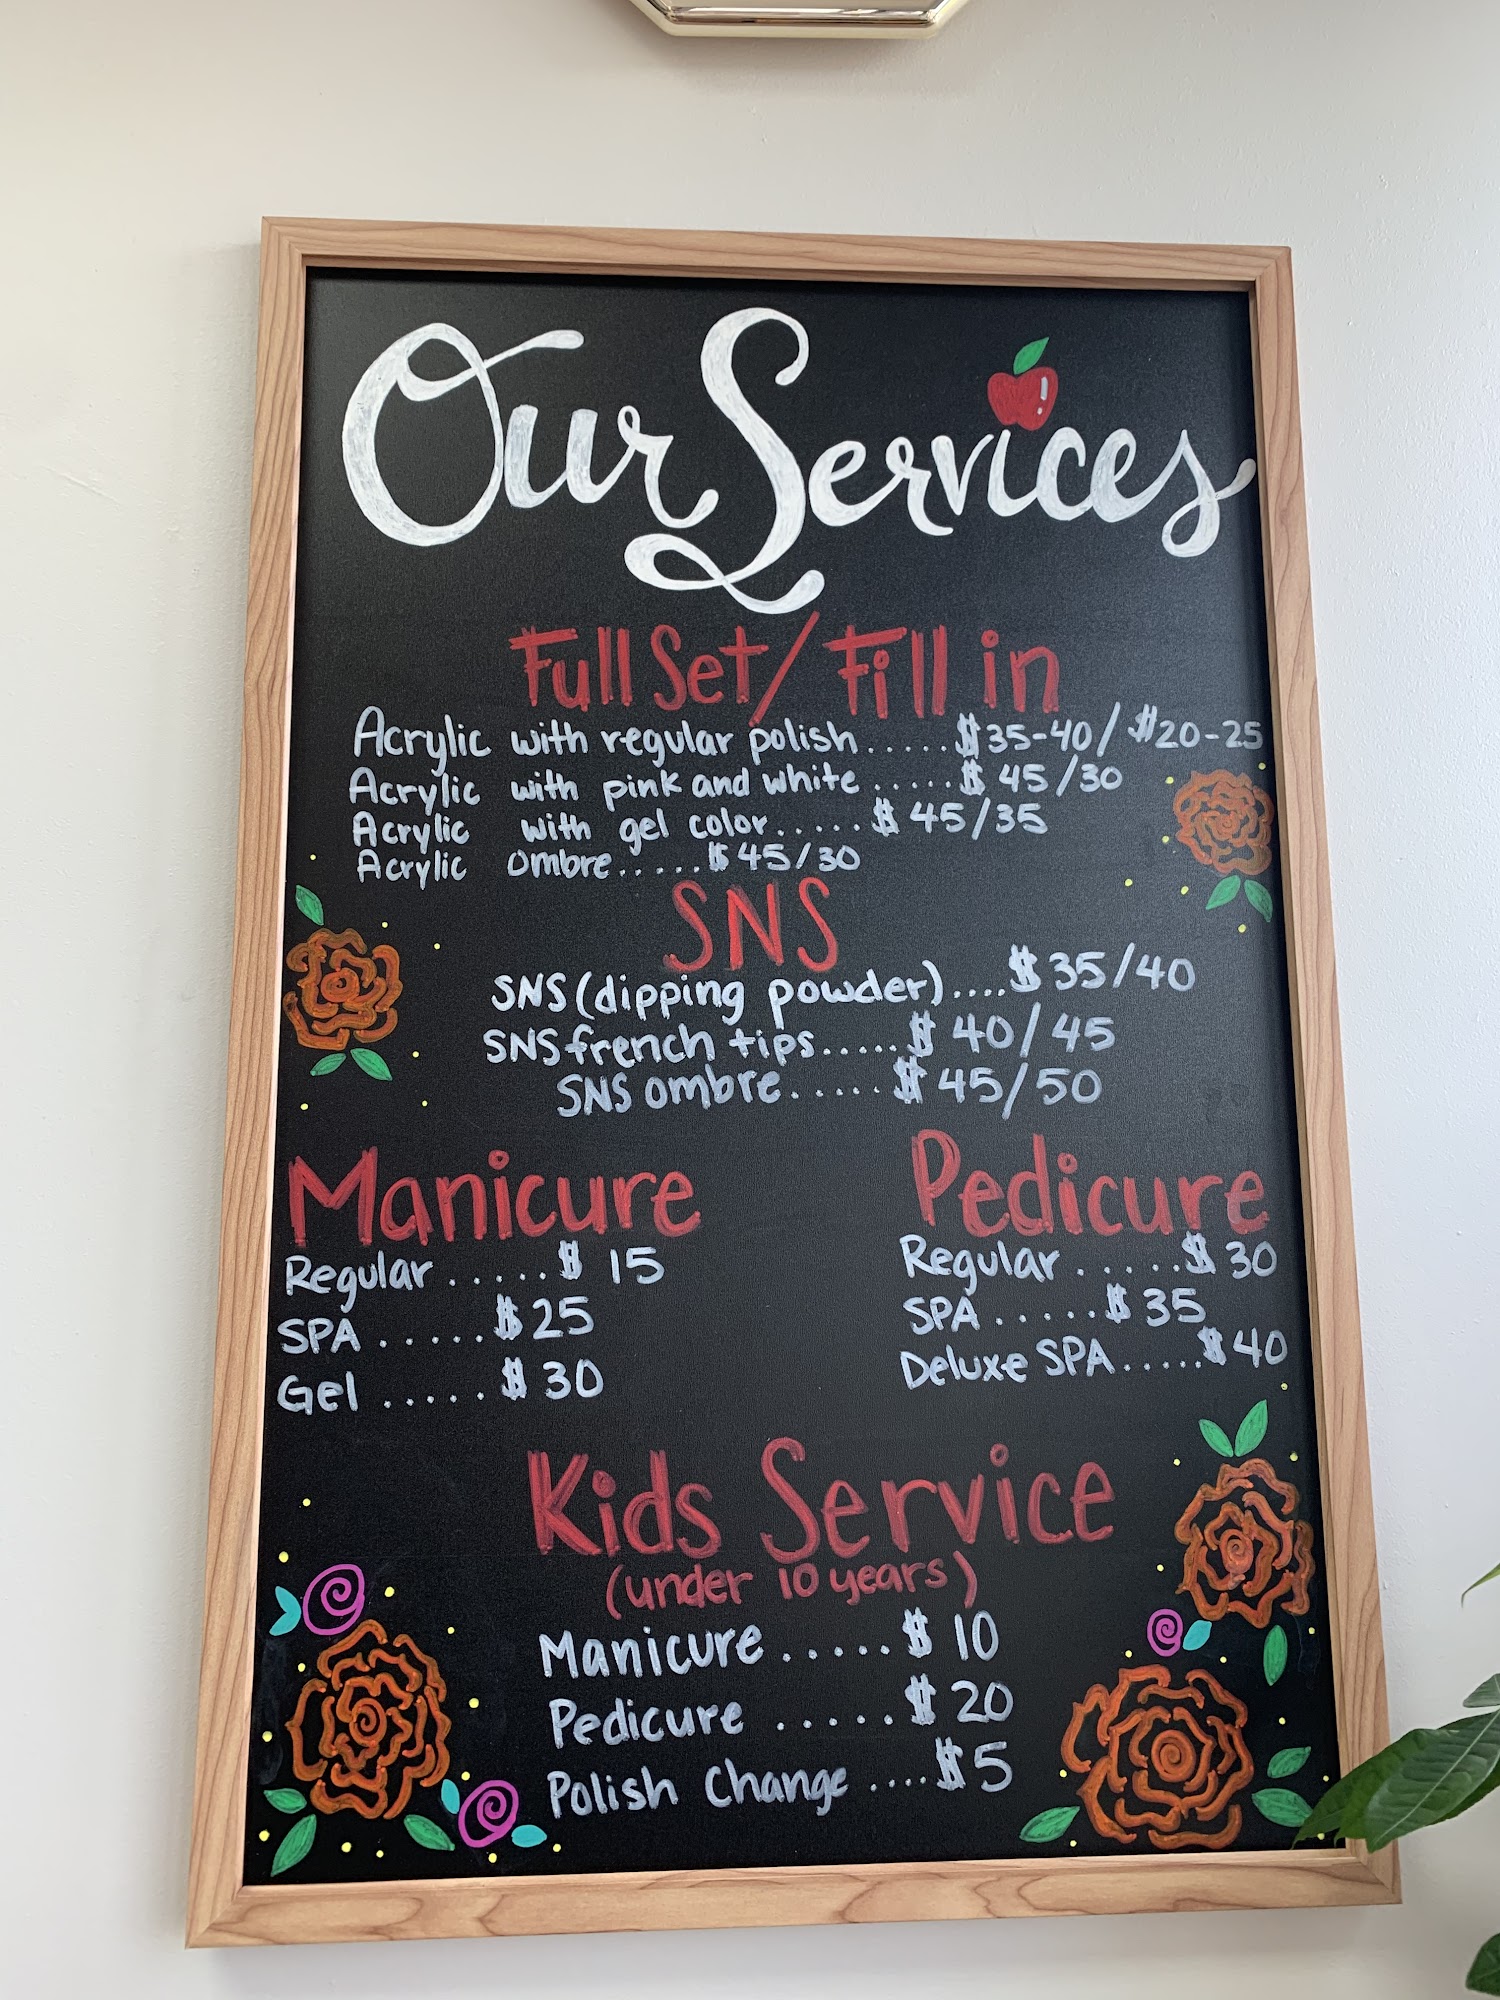 Our Services
Full Set/Fill in
Acrylic with regular polish.....$35-40/$20-25
Acrylic with pink and white.....$45/30
Acrylic with gel color.....$45/35
Acrylic ombre.....$45/30
SNS
SNS (dipping powder)....$35/40
SNS french tips.....$40/45
SNS ombre.....$45/50
Manicure
Regular.....$15
SPA.....$25
Gel.....$30
Pedicure
Regular.....$30
SPA.....$35
Deluxe SPA.....$40
Kids Service
(under 10 years)
Manicure.....$10
Pedicure.....$20
Polish Change....$5